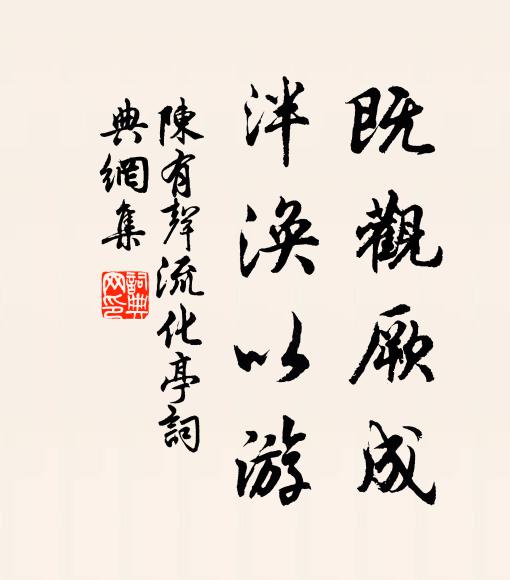 既觀厥成
泮渙以游
陳有聲流化亭詞
典網集
詞典網印